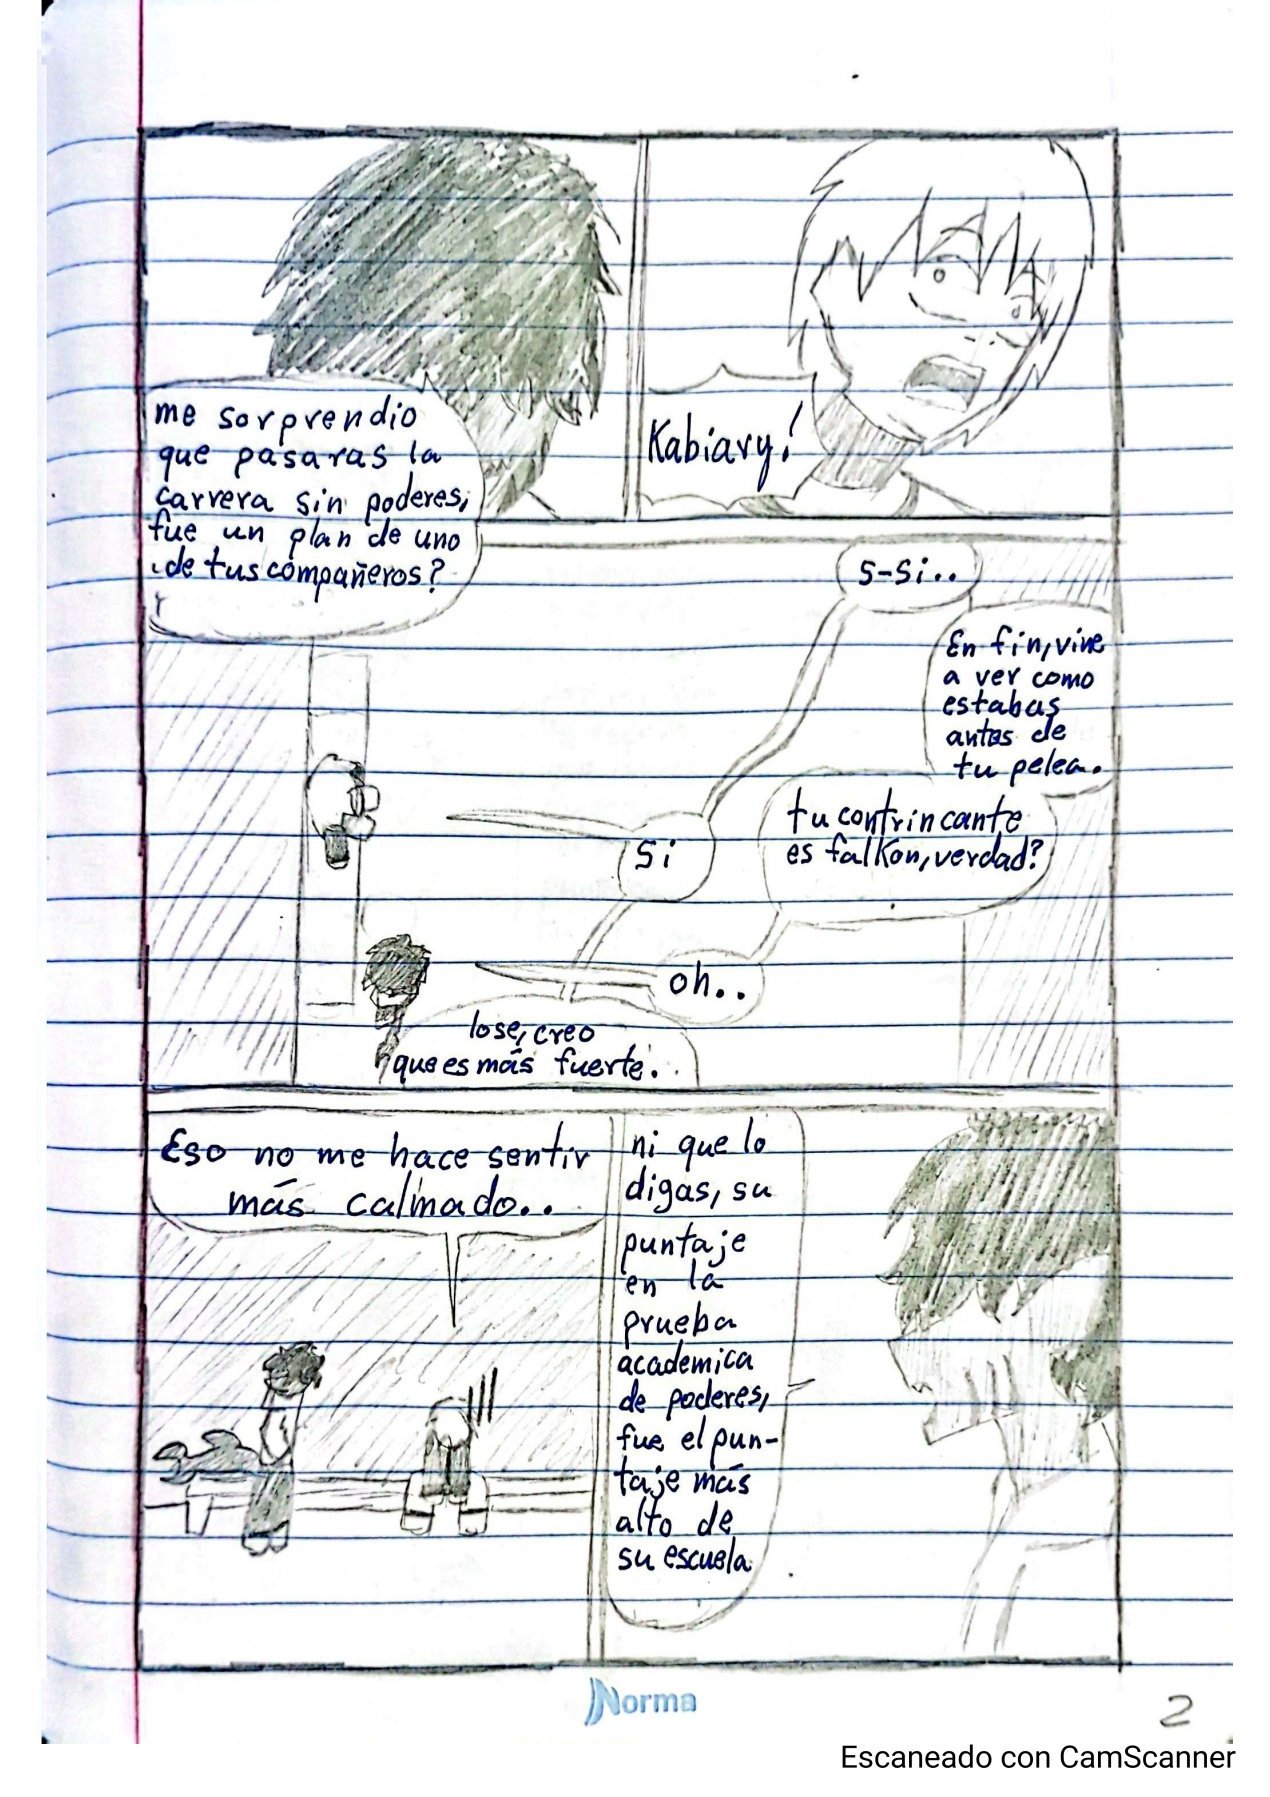 me sorprendio
que pasaras la
carrera sin poderes,
fue un plan de uno
de tus compañeros?
Kabiary!
s-si..
En fin, vine
a ver como
estabas
antes de
tu pelea.
tu contrincante
es falkon, verdad?
Si
oh..
lose, creo
que es más fuerte.
Eso no me hace sentir
más calmado..
ni que lo
digas, su
puntaje
en la
prueba
academica
de poderes,
fue el pun-
taje más
alto de
su escuela
Norma
2
Escaneado con CamScanner